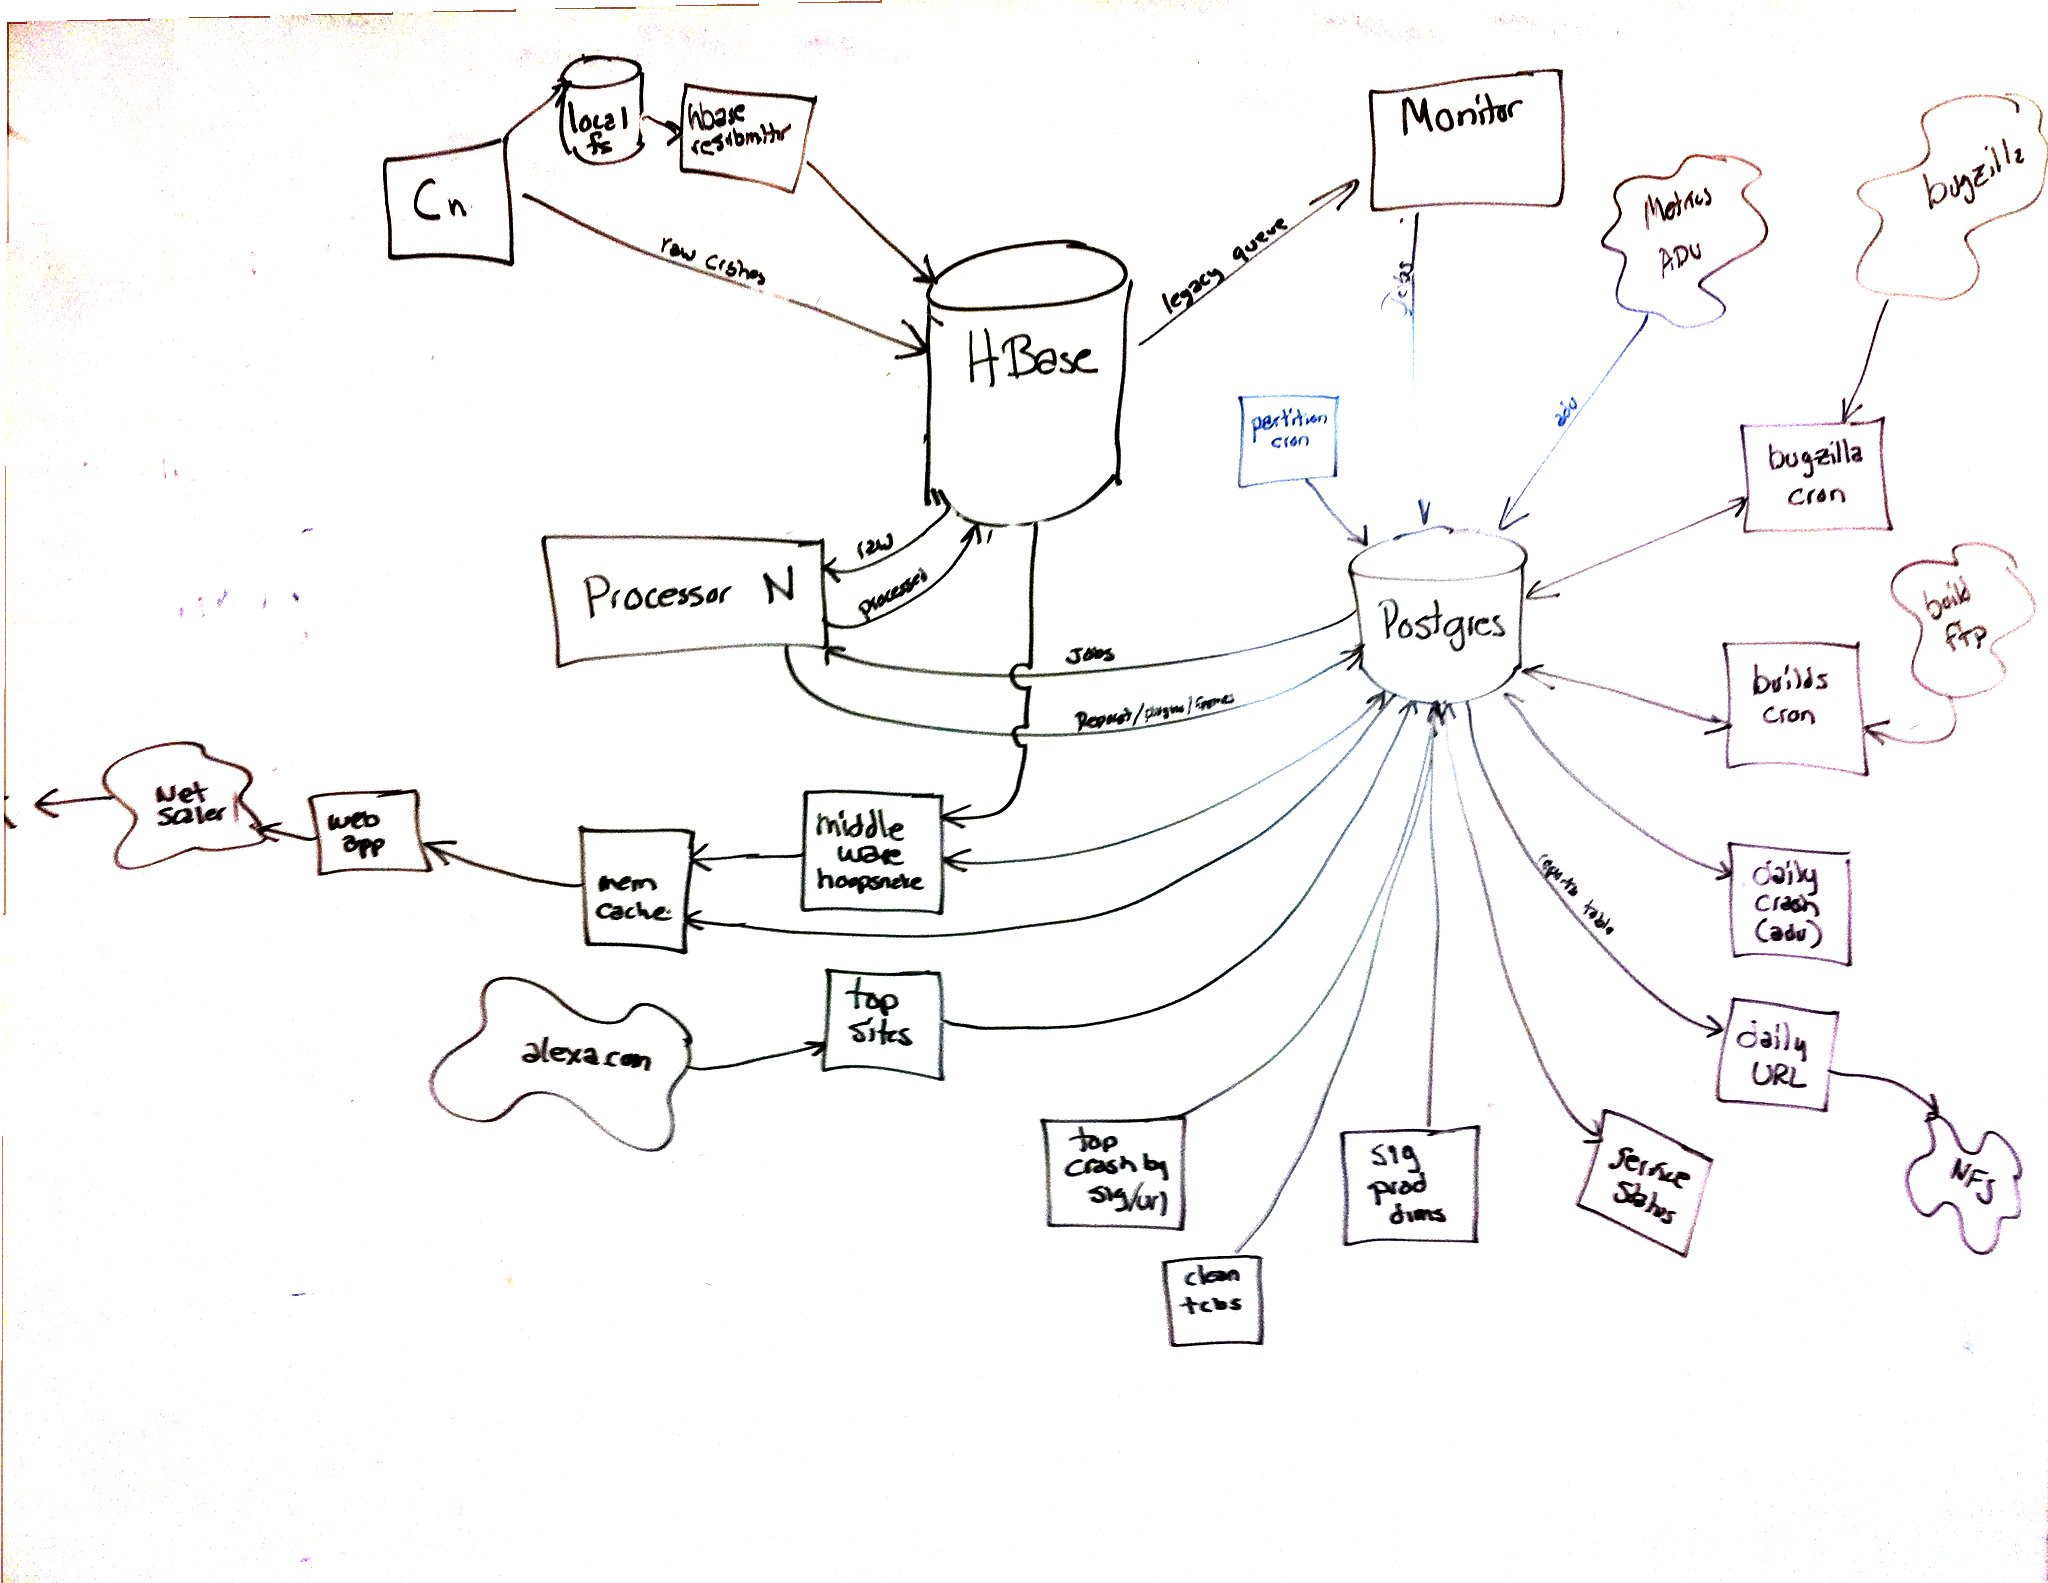 local
fs
hbase
resubmitter
Cn
raw crshes
HBase
legacy queue
Monitor
Jobs
Metrics
ADU
bugzilla
adu
partition
cron
bugzilla
cron
raw
processed
Processor N
Postgres
build
FTP
Jobs
builds
cron
Net
scaler
web
app
mem
cache
middle
ware
hoopsnake
daily
crash
(adu)
table
alexa.com
top
sites
daily
URL
NFS
top
crash by
sig/url
sig
prod
dims
service
status
clean
tcbs